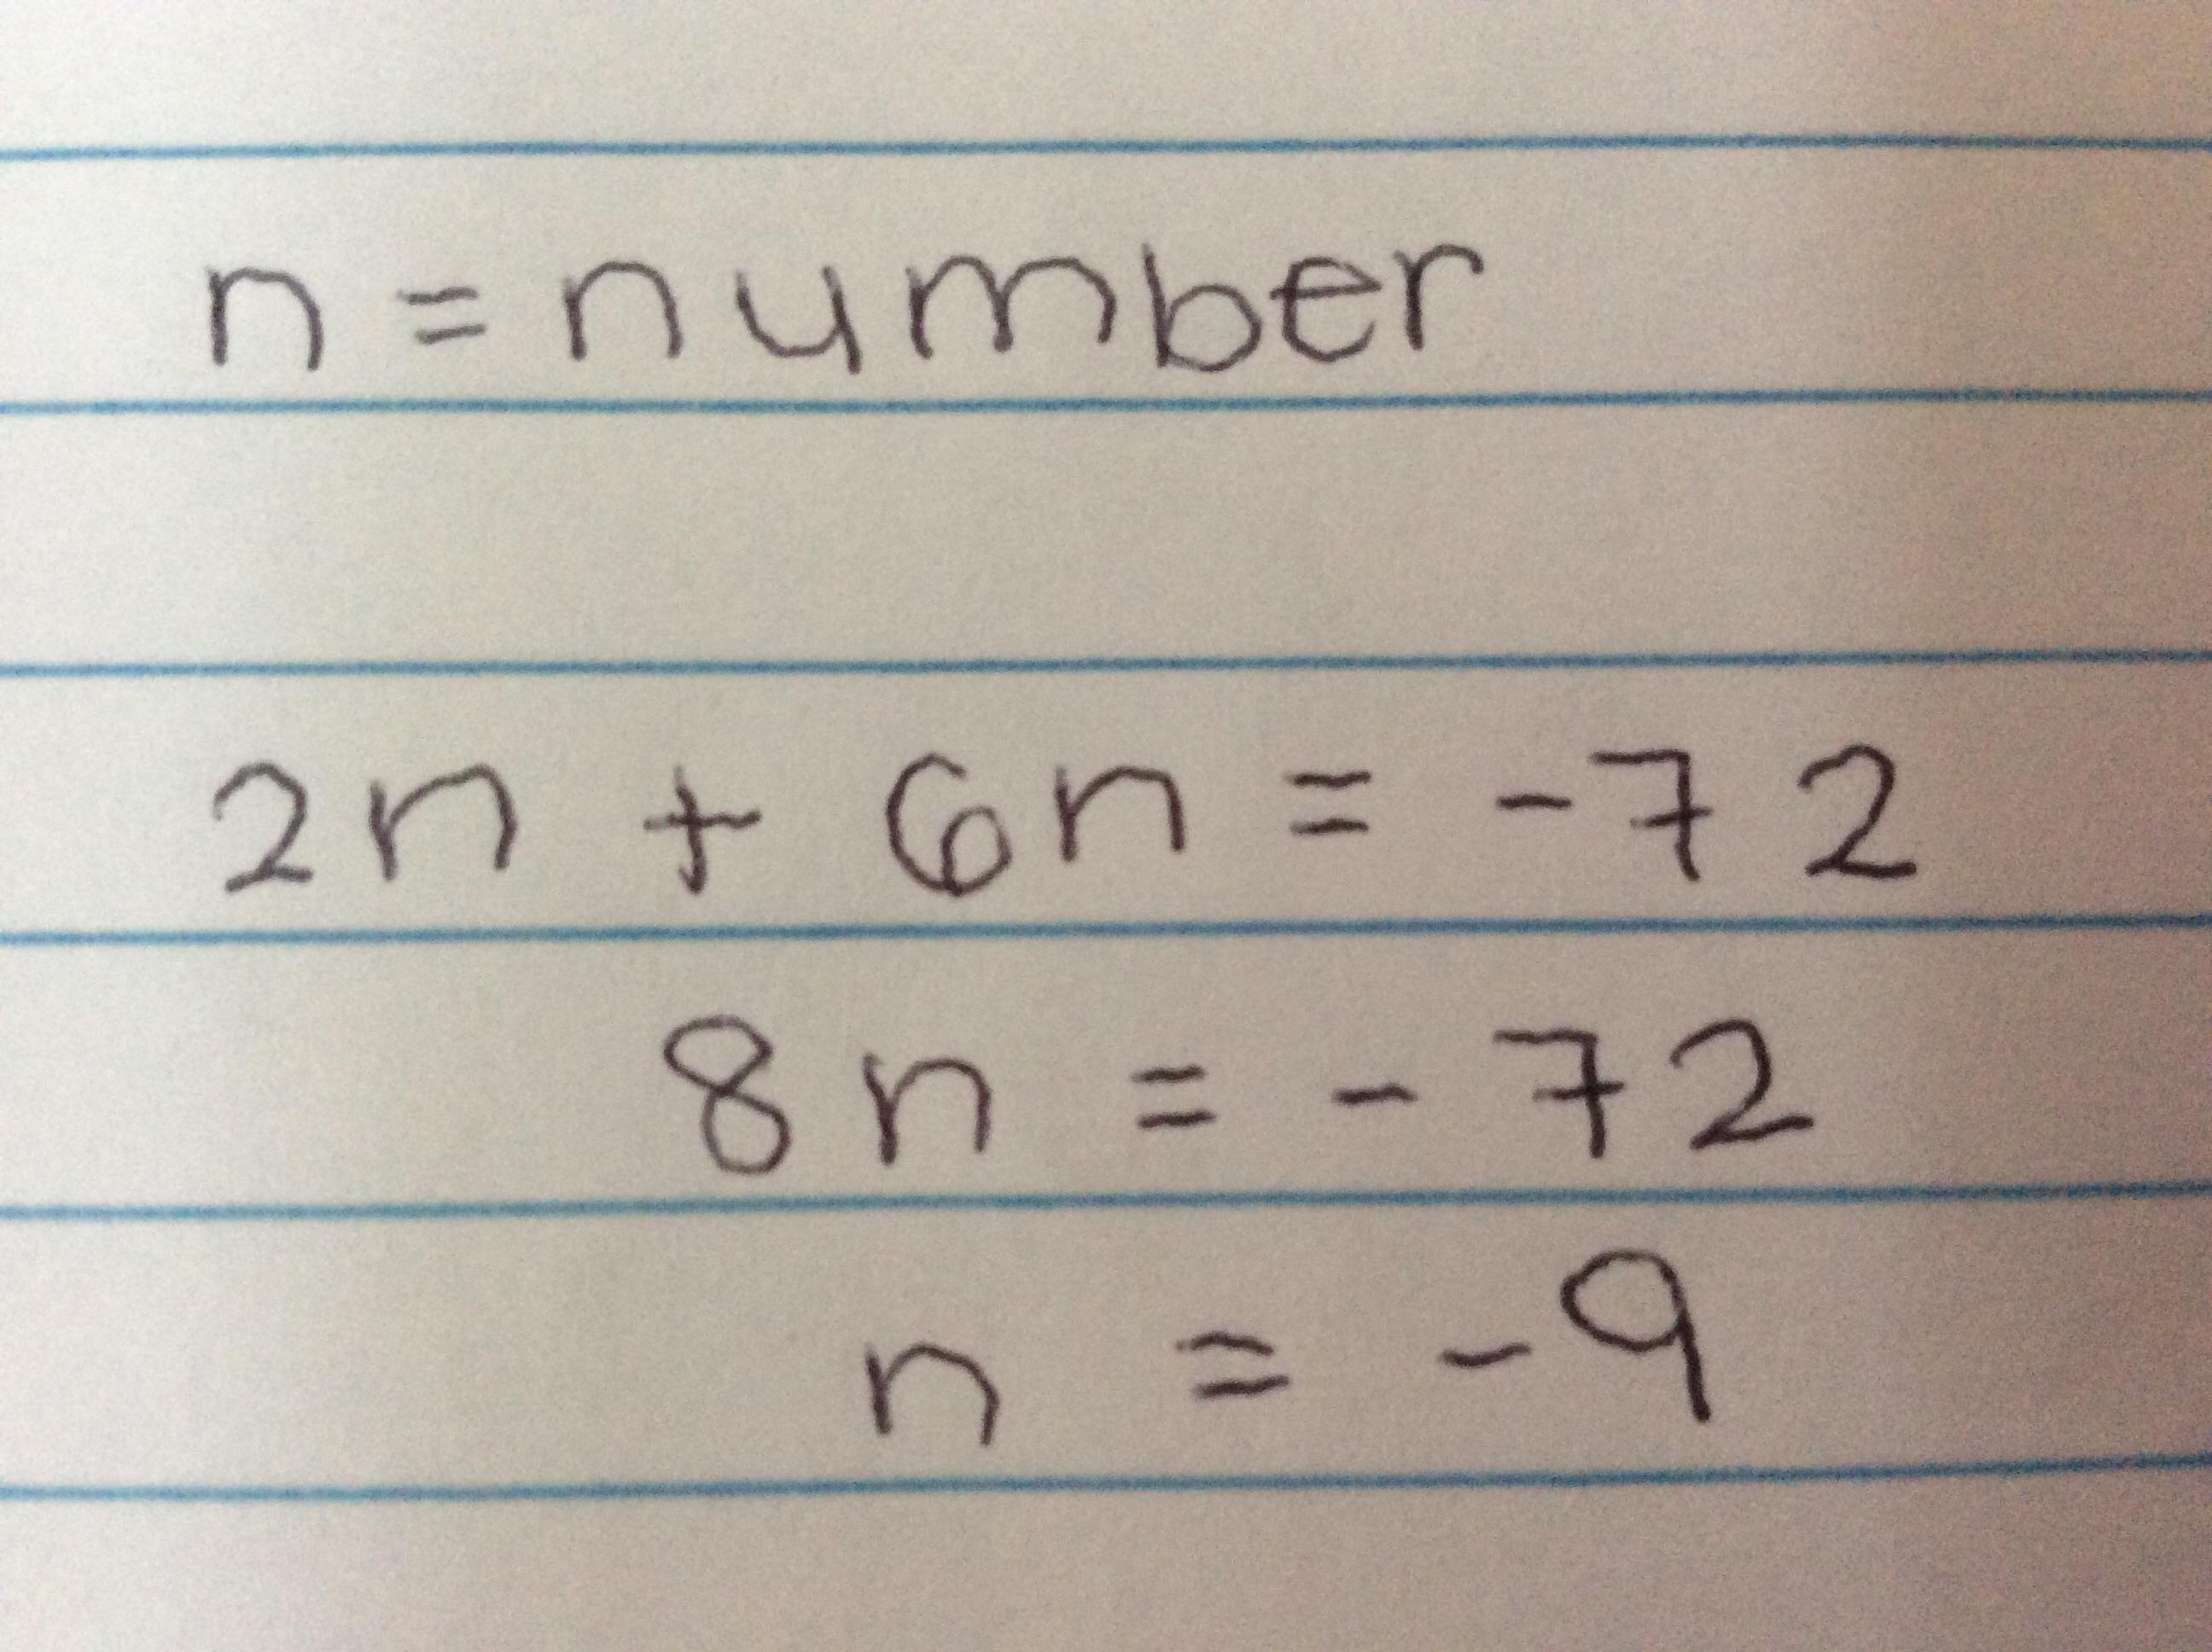 n = number
2n + 6n = -72
8n = -72
n = -9